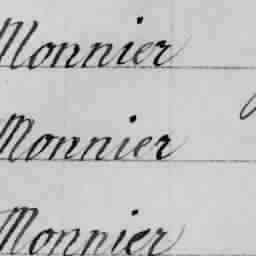 Monnier
Monnier
Monnier